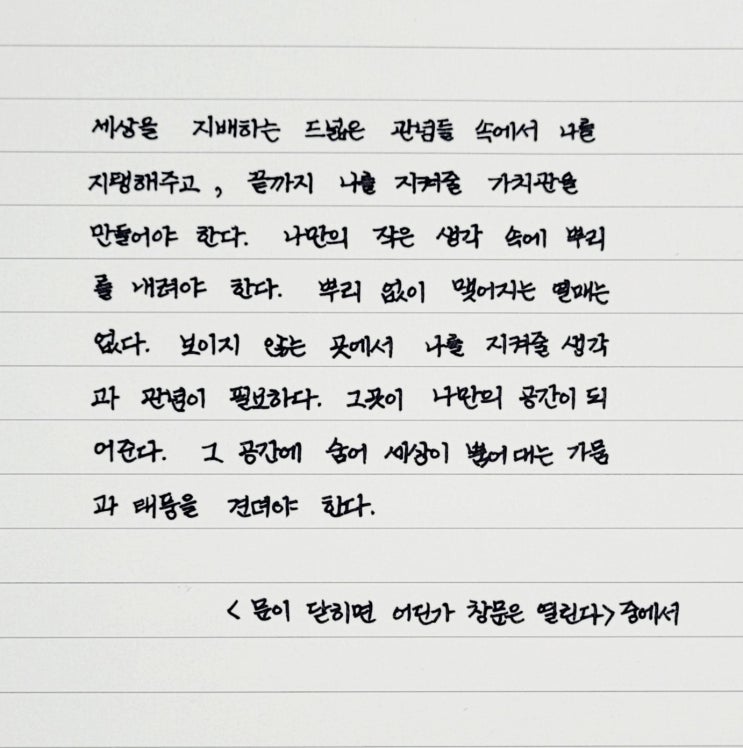 세상을 지배하는 드넓은 관념들 속에서 나를
지탱해주고, 끝까지 나를 지켜줄 가치관을
만들어야 한다. 나만의 작은 생각 속에 뿌리
를 내려야 한다. 뿌리 없이 맺어지는 열매는
없다. 보이지 않는 곳에서 나를 지켜줄 생각
과 관념이 필요하다. 그곳이 나만의 공간이 되
어준다. 그 공간에 숨어 세상이 뿜어대는 가뭄
과 태풍을 견뎌야 한다.
<문이 닫히면 어딘가 창문은 열린다> 중에서